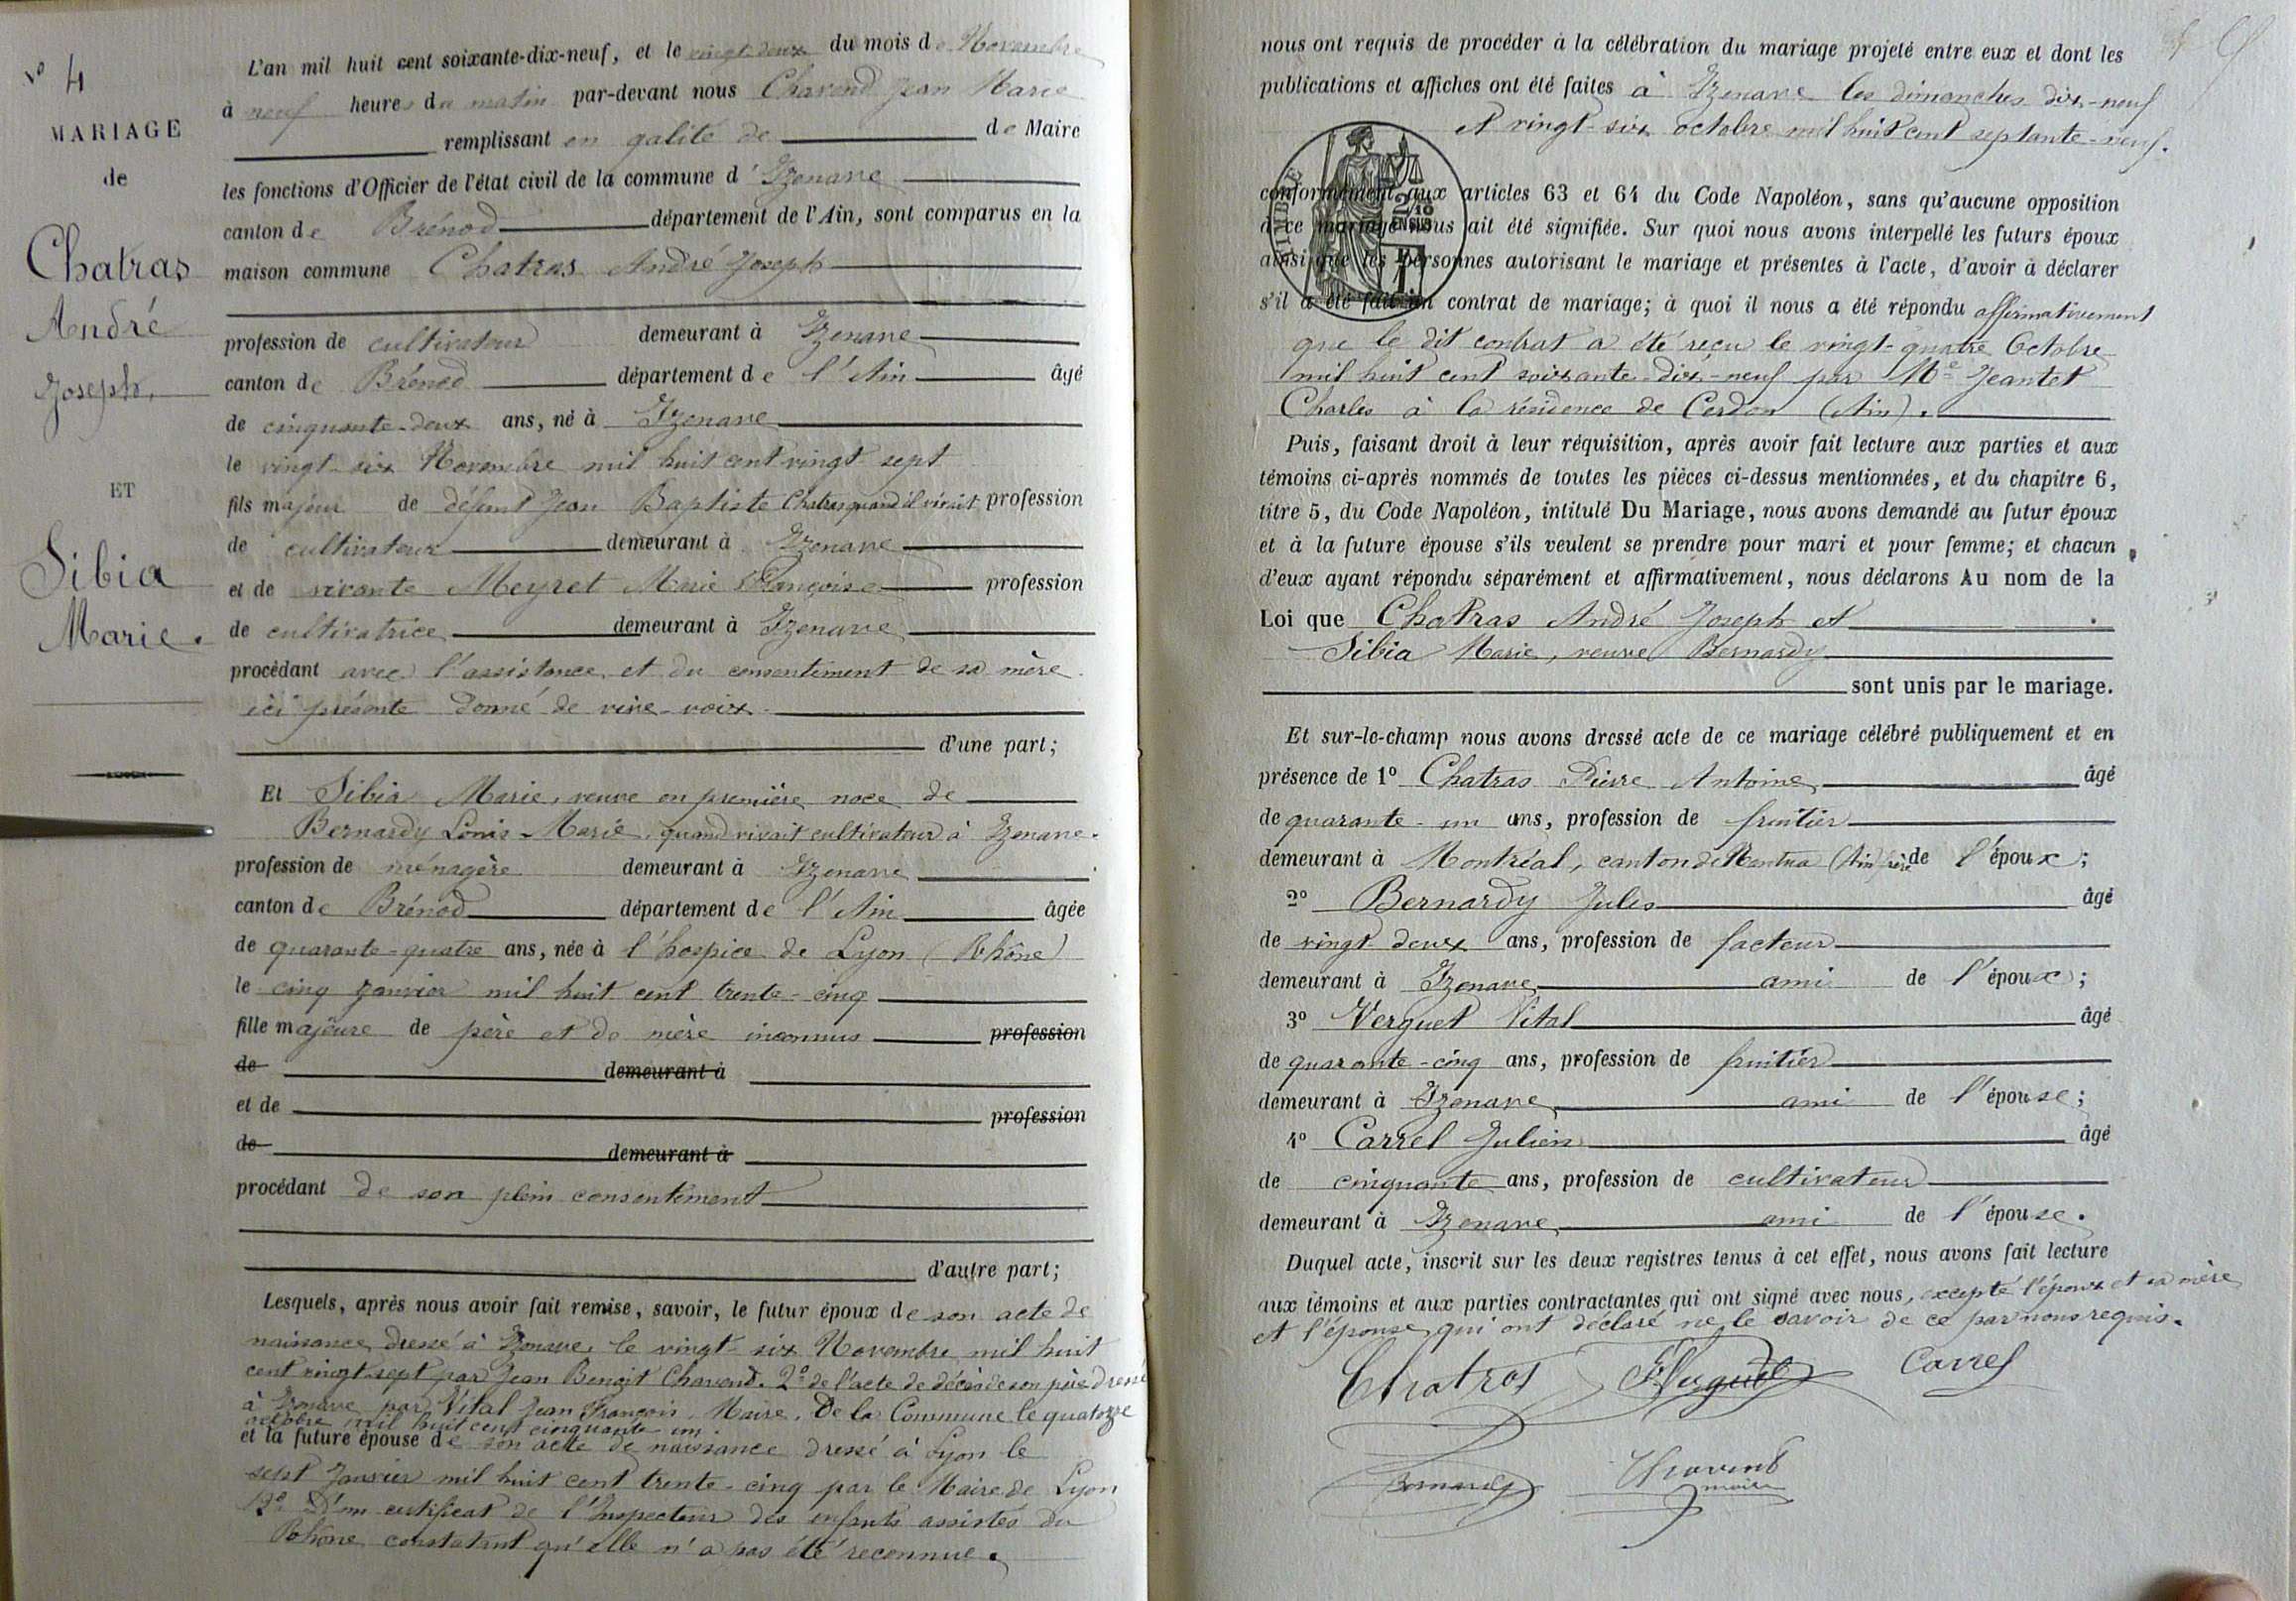 N° 4
MARIAGE
de
Chatras
André
Joseph
ET
Sibia
Marie.
L'an mil huit cent soixante-dix-neuf, et le vingt-deux du mois de Novembre
à neuf heures du matin par-devant nous Chavend Jean Marie
remplissant en qalité de de Maire
les fonctions d'Officier de l'état civil de la commune d'Izenave
canton de Brénod département de l'Ain, sont comparus en la
maison commune Chatras André Joseph
profession de cultivateur demeurant à Izenave
canton de Brénod département de l'Ain âgé
de cinquante-deux ans, né à Izenave
le vingt-six Novembre mil huit cent vingt sept
fils majeur de défunt Jean Baptiste Chatras quand il vivait profession
de cultivateur demeurant à Izenave
et de vivante Meyret Marie Françoise profession
de cultivatrice demeurant à Izenave
procédant avec l'assistance et du consentement de sa mère
ici présente donné de vive-voix
d'une part;
Et Sibia Marie, veuve en première noce de
Bernardy Louis-Marie, quand vivait cultivateur à Izenave.
profession de ménagère demeurant à Izenave
canton de Brénod département de l'Ain âgée
de quarante-quatre ans, née à l'hospice de Lyon (Rhône)
le cinq Janvier mil huit cent trente-cinq
fille majeure de père et de mère inconnus profession
de demeurant à
et de profession
de demeurant à
procédant de son plein consentement
d'autre part;
Lesquels, après nous avoir fait remise, savoir, le futur époux de son acte de
naissance dressé à Izenave, le vingt-six Novembre mil huit
cent vingt-sept par Jean Benoit Chavend. 2° de l'acte de décès de son père dressé
à Izenave par Vital Jean François, Maire, De la Commune le quatorze
octobre mil huit cent cinquante-un.
et la future épouse de son acte de naissance dressé à Lyon le
sept Janvier mil huit cent trente-cinq par le Maire de Lyon
2° D'un certificat de l'Inspecteur des enfants assistés du
Rhône constatant qu'elle n'a pas été reconnue.
nous ont requis de procéder à la célébration du mariage projeté entre eux et dont les
publications et affiches ont été faites à Izenave les dimanches dix-neuf
et vingt-six octobre mil huit cent septante-neuf.
conformément aux articles 63 et 64 du Code Napoléon, sans qu'aucune opposition
à ce mariage nous ait été signifiée. Sur quoi nous avons interpellé les futurs époux
ainsi que les personnes autorisant le mariage et présentes à l'acte, d'avoir à déclarer
s'il a été fait un contrat de mariage; à quoi il nous a été répondu affirmativement
que le dit contrat a été reçu le vingt-quatre Octobre
mil huit cent soixante-dix-neuf par Me Jeantet
Charles à la résidence de Cerdon (Ain).
Puis, faisant droit à leur réquisition, après avoir fait lecture aux parties et aux
témoins ci-après nommés de toutes les pièces ci-dessus mentionnées, et du chapitre 6,
titre 5, du Code Napoléon, intitulé Du Mariage, nous avons demandé au futur époux
et à la future épouse s'ils veulent se prendre pour mari et pour femme; et chacun
d'eux ayant répondu séparément et affirmativement, nous déclarons Au nom de la
Loi que Chatras André Joseph et
Sibia Marie, veuve Bernardy
sont unis par le mariage.
Et sur-le-champ nous avons dressé acte de ce mariage célébré publiquement et en
présence de 1° Chatras Pierre Antoine âgé
de quarante-un ans, profession de fruitier
demeurant à Montréal, canton de Nantua (Ain) frère de l'époux;
2° Bernardy Jules âgé
de vingt deux ans, profession de facteur
demeurant à Izenave ami de l'époux;
3° Verguet Vital âgé
de quarante-cinq ans, profession de fruitier
demeurant à Izenave ami de l'épouse;
4° Carrel Julien âgé
de cinquante ans, profession de cultivateur
demeurant à Izenave ami de l'épouse.
Duquel acte, inscrit sur les deux registres tenus à cet effet, nous avons fait lecture
aux témoins et aux parties contractantes qui ont signé avec nous, excepté l'époux et sa mère
et l'épouse qui ont déclaré ne le savoir de ce par nous requis.
Chatras Carrel
Bernardy Chavend
maire